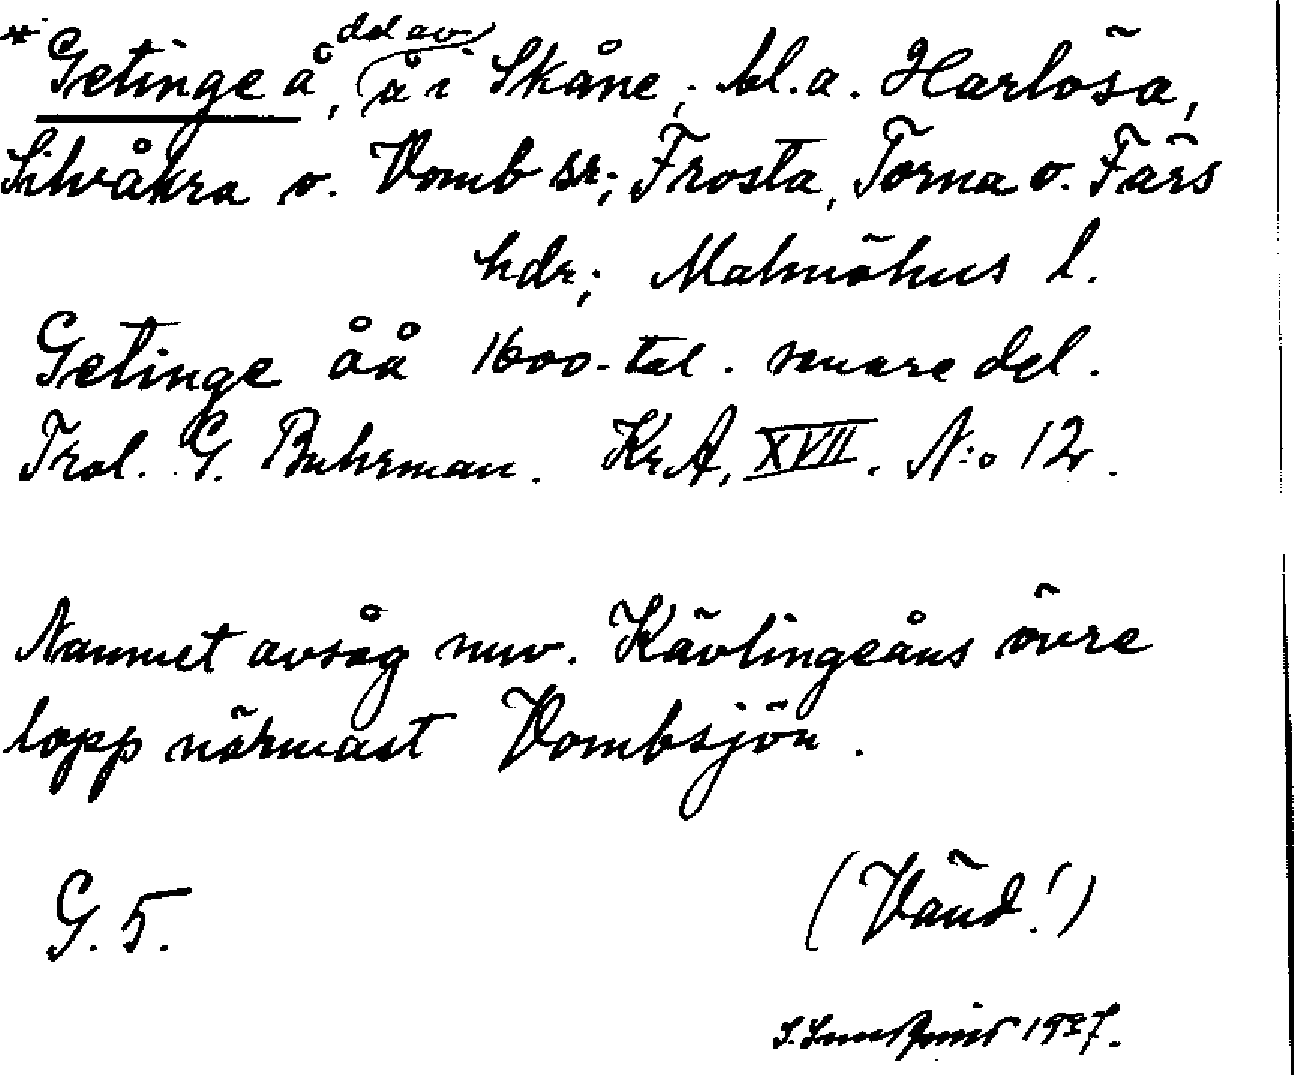 *Getinge å, del av å i Skåne; bl.a. Harlösa,
Silvåkra o. Vomb sr; Frosta, Torna o. Färs
hdr; Malmöhus l.
Getinge åå 1600-tal. senare del.
Trol. G. Buhrman. KrA, XVII. N:o 12.
Namnet avsåg nuv. Kävlingeåns övre
lopp närmast Vombsjön.
G. 5.
(Vänd!)
S.